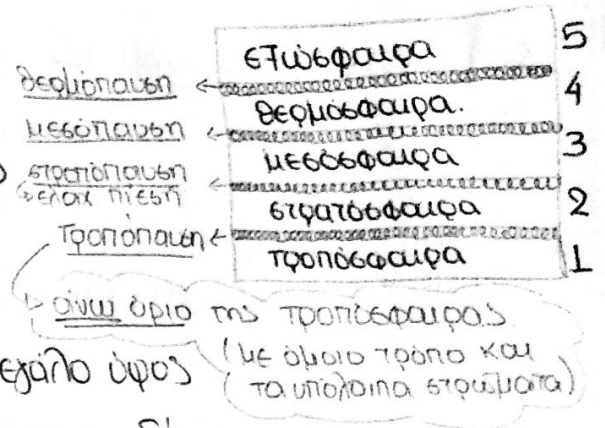 εξώσφαιρα 5
θερμόπαυση
θερμόσφαιρα. 4
μεσόπαυση
μεσόσφαιρα 3
στρατόπαυση
ελαχ πίεση
στρατόσφαιρα 2
Τροπόπαυση
τροπόσφαιρα 1
άνω όριο της τροπόσφαιρας
(με όμοιο τρόπο και
τα υπόλοιπα στρώματα)
εγάλο ύψος